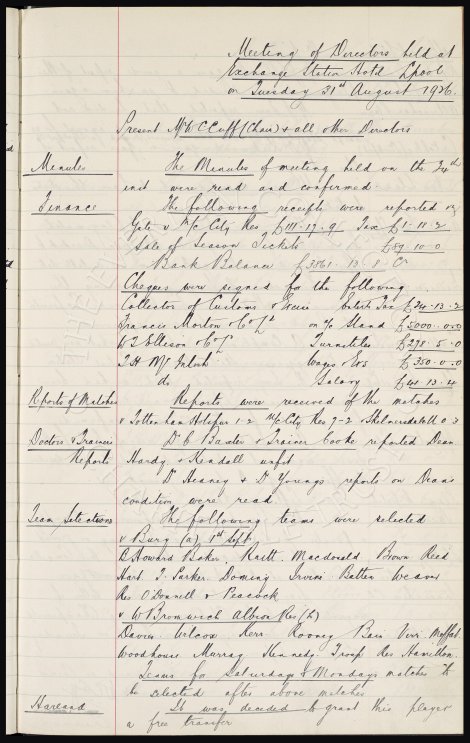 Meeting of Directors held at
Exchange Station Hotel Lpool
on Tuesday 31st August 1926.
Present Mr W C Cuff (Chair) & all other Directors
Minutes The Minutes of meeting held on the 24th
inst were read and confirmed.
Finance The following receipts were reported viz
Gate v M/c City Res £111-17-9 Tax £1-11-2
Sale of Season Tickets £89 10-0
Bank Balance £3861 13 8 Cr
Cheques were signed for the following
Collector of Customs & Excise Entert Tax £24-13-2
Francis Morton & Co Ld on a/c Stand £5000-0-0
W T Ellison & Co Ld Turnstiles £298-5-0
T H McIntosh Wages & Exs £350-0-0
do Salary £41 13 4
Reports of Matches Reports were received of the matches
v Tottenham Hotspur 1-2 M/c City Res 7-2 & Skelmersdale U 0 3
Doctors & Trainers Dr C Baxter & Trainer Cooke reported Dean
Reports Hardy & Kendall unfit
Dr Heaney & Dr Youngs reports on Dean's
condition were read.
Team Selections The following teams were selected
v Bury (a) 1st Sept
B Howard Baker. Raitt. Macdonald Brown Reed
Hart T. Parker. Dominy Irvine Batten Weaver
Res O'Donnell & Peacock
v W Bromwich Albion Res (h)
Davies Wilcox Kerr Rooney Bain Virr. Moffat.
Woodhouse Murray Kennedy Troup Res Hamilton.
Teams for Saturdays & Mondays matches to
be selected after above matches
Harland It was decided to grant this player
a free transfer